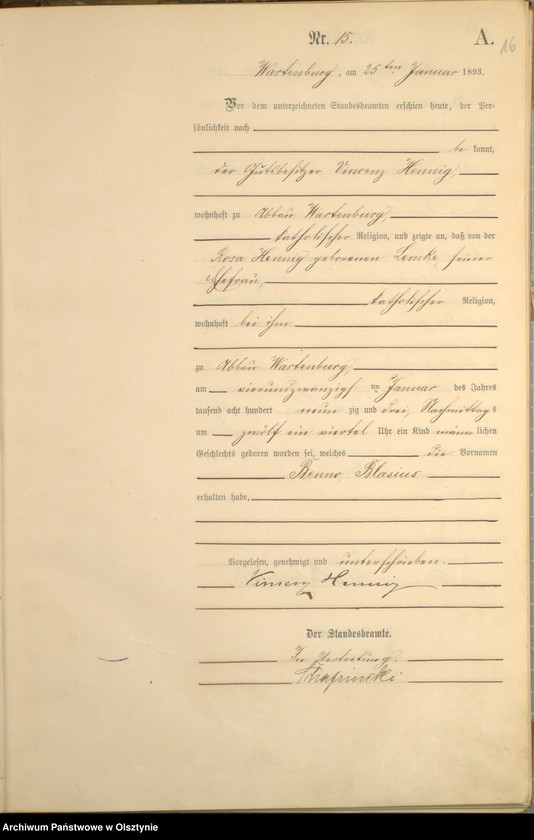 Nr. 15.
A.
16
Wartenburg, am 25ten Januar 1893.
Vor dem unterzeichneten Standesbeamten erschien heute, der Per-
sönlichkeit nach
be kannt,
der Gutsbesitzer Vincenz Hennig,
wohnhaft zu Abbau Wartenburg,
katholischer Religion, und zeigte an, daß von der
Rosa Hennig geborenen Lemke, seiner
Ehefrau,
katholischer Religion,
wohnhaft bei ihm
zu Abbau Wartenburg,
am vierundzwanzigsten Januar des Jahres
tausend acht hundert neun zig und drei, Nachmittags
um zwölf ein viertel Uhr ein Kind männ lichen
Geschlechts geboren worden sei, welches die Vornamen
Benno, Blasius
erhalten habe,
Vorgelesen, genehmigt und unterschrieben.
Vincenz Hennig
Der Standesbeamte.
In Vertretung.
Archiwum Państwowe w Olsztynie